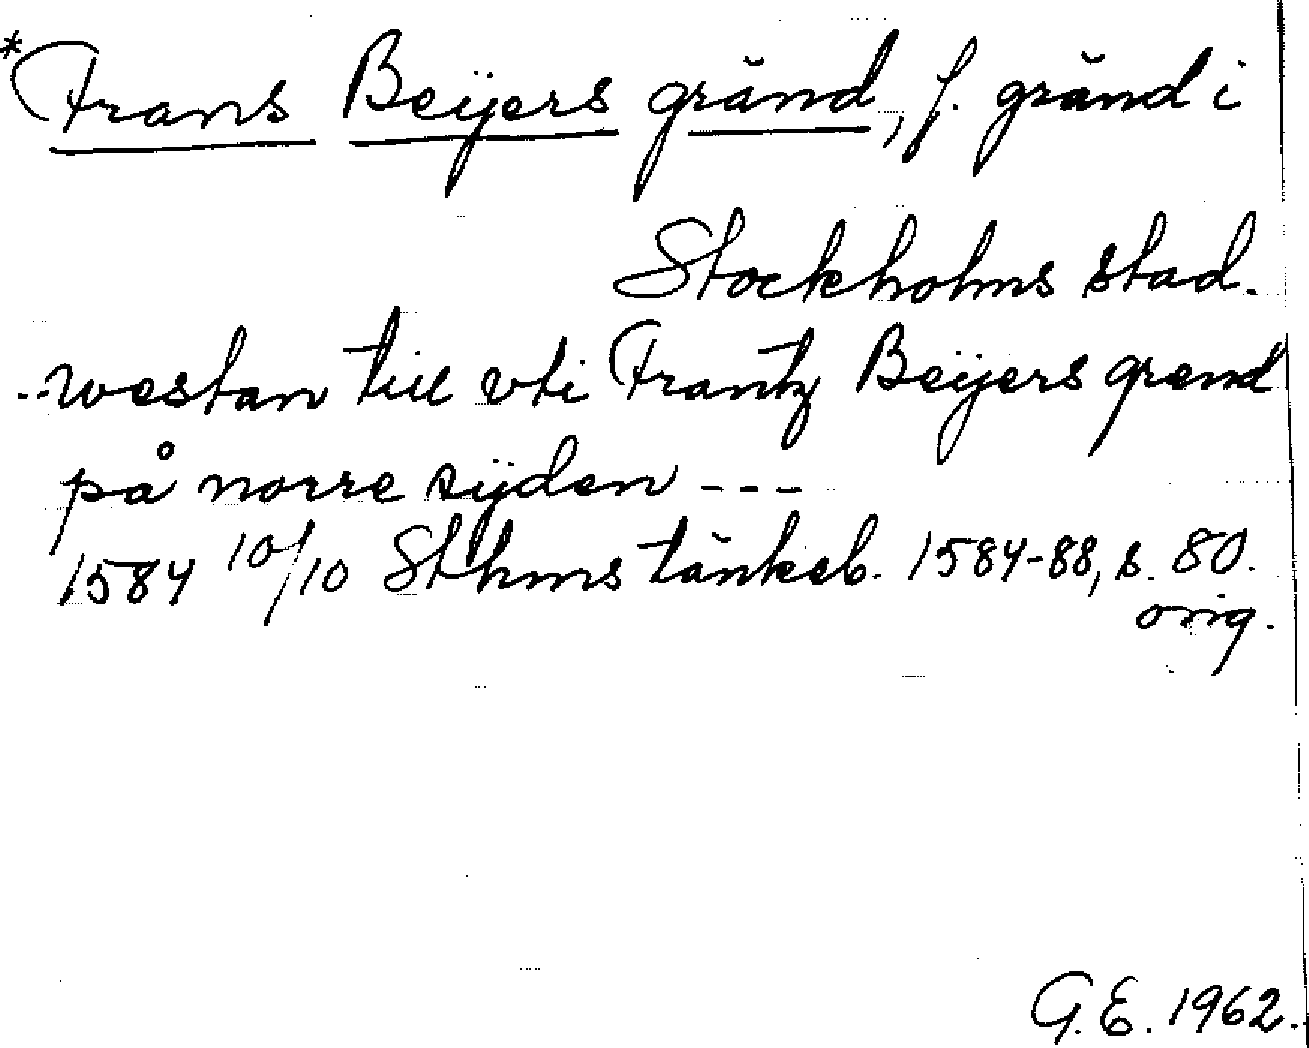 *Frans Beijers gränd, f. gränd i
Stockholms stad.
..westan till vti Frantz Beÿers grend
på norre sÿden ---
1584 10/10 Sthms tänkeb. 1584-88, s. 80.
orig.
G.E. 1962.